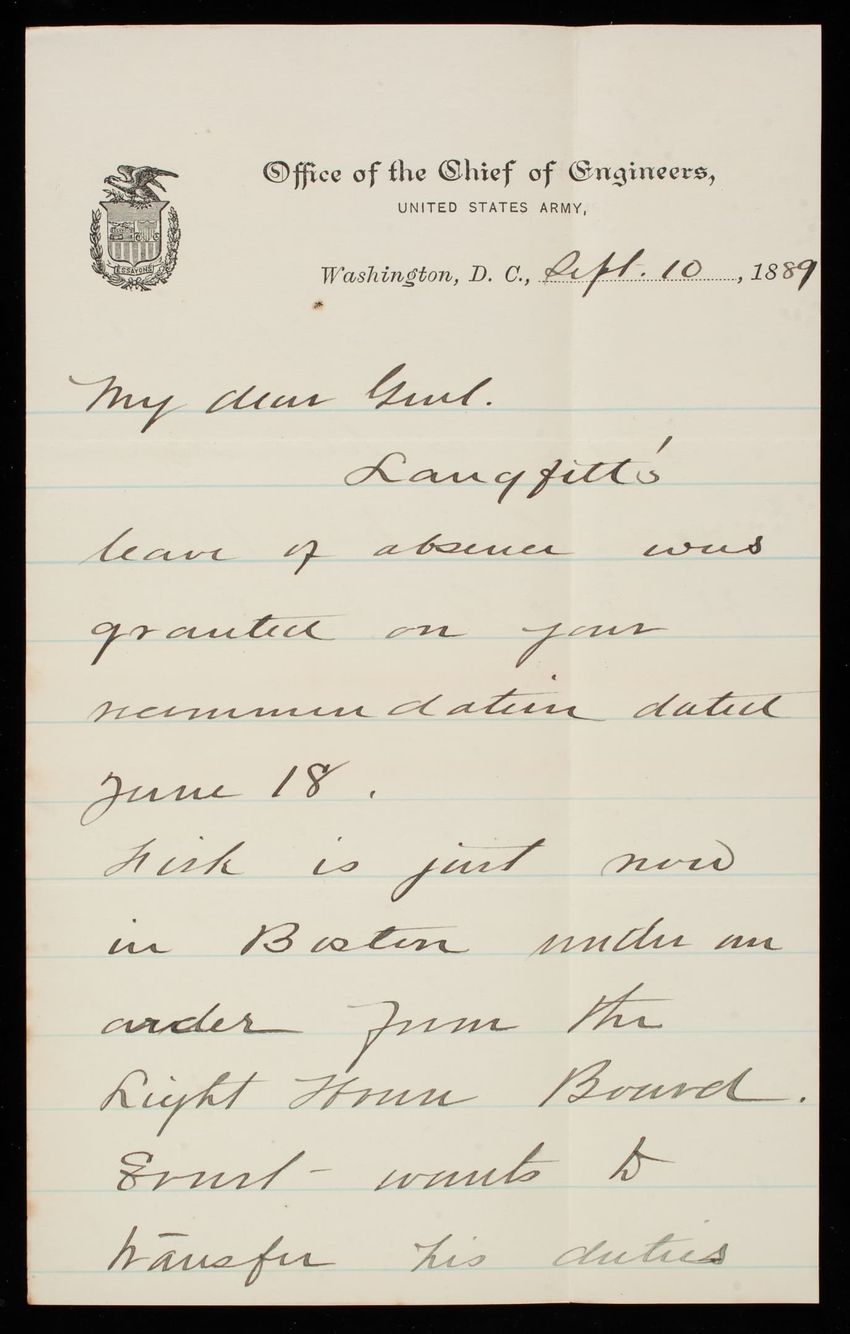 Office of the Chief of Engineers,
UNITED STATES ARMY,
ESSAYONS
Washington, D. C., Sept. 10, 1889
My dear Genl.
Langfitt's
leave of absence was
granted on your
recommendation dated
June 18.
Fisk is just now
in Boston under an
order from the
Light House Board.
Ernst - wants to
transfer his duties